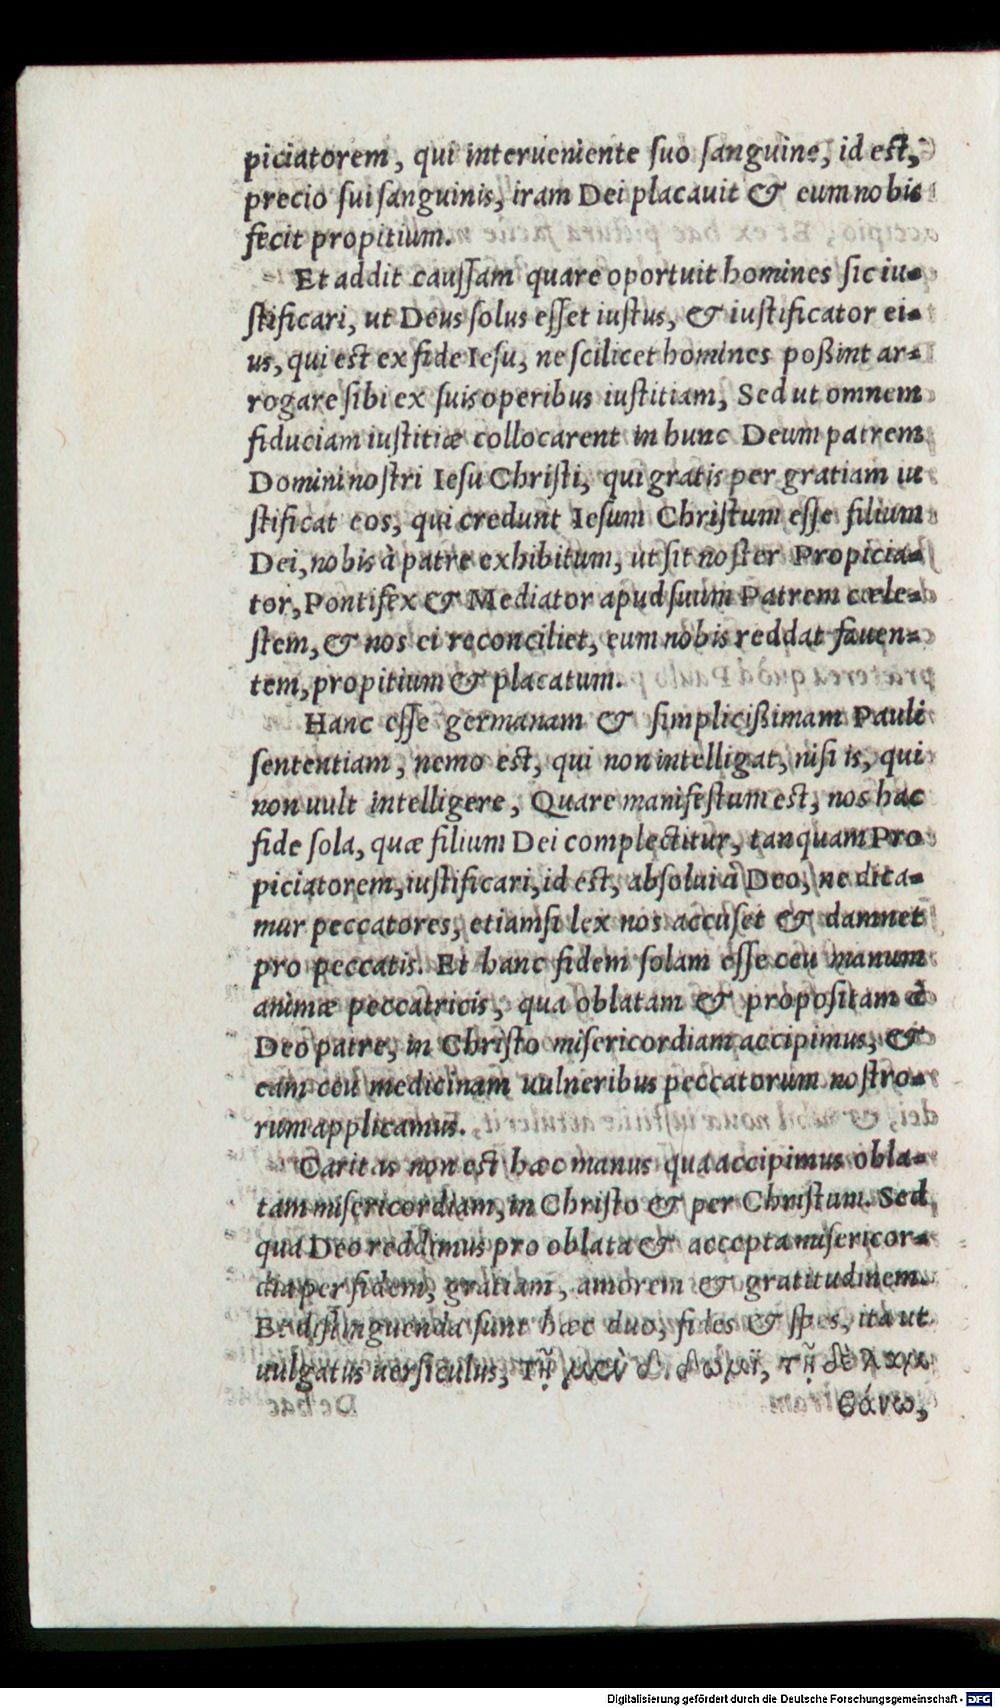 piciatorem, qui interueniente ſuo ſanguine, id eſt,
precio ſui ſanguinis, iram Dei placauit & eum nobis
fecit propitium.
Et addit cauſſam quare oportuit homines ſic iu-
ſtificari, ut Deus ſolus eſſet iuſtus, & iuſtificator ei-
us, qui eſt ex fide Ieſu, ne ſcilicet homines poßint ar-
rogare ſibi ex ſuis operibus iuſtitiam, Sed ut omnem
fiduciam iuſtitiæ collocarent in hunc Deum patrem
Domini noſtri Ieſu Chriſti, qui gratis per gratiam iu
ſtificat eos, qui credunt Ieſum Chriſtum eſſe filium
Dei, nobis à patre exhibitum, ut ſit noſter Propicia-
tor, Pontifex & Mediator apud ſuum Patrem cœle-
ſtem, & nos ei reconciliet, eum nobis reddat fauen-
tem, propitium & placatum.
Hanc eſſe germanam & ſimplicißimam Pauli
ſententiam, nemo eſt, qui non intelligat, niſi is, qui
non uult intelligere, Quare manifeſtum eſt, nos hac
fide ſola, quæ filium Dei complectitur, tanquam Pro
piciatorem, iuſtificari, id eſt, abſolui à Deo, ne dica-
mur peccatores, etiamſi lex nos accuſet & damnet
pro peccatis. Et hanc fidem ſolam eſſe ceu manum
animæ peccatricis, qua oblatam & propoſitam à
Deo patre, in Chriſto miſericordiam accipimus, &
eam ceu medicinam uulneribus peccatorum noſtro-
rum applicamus.
Caritas non eſt hæc manus qua accipimus obla-
tam miſericordiam, in Chriſto & per Chriſtum. Sed
qua Deo reddimus pro oblata & accepta miſericor-
dia per fidem, gratiam, amorem & gratitudinem.
Et diſtinguenda ſunt hæc duo, fides & ſpes, ita ut
uulgatus uerſiculus, τῇ μὲν δίδωμι, τῇ δὲ λαμ
βάνω,
Digitalisierung gefördert durch die Deutsche Forschungsgemeinschaft - DFG